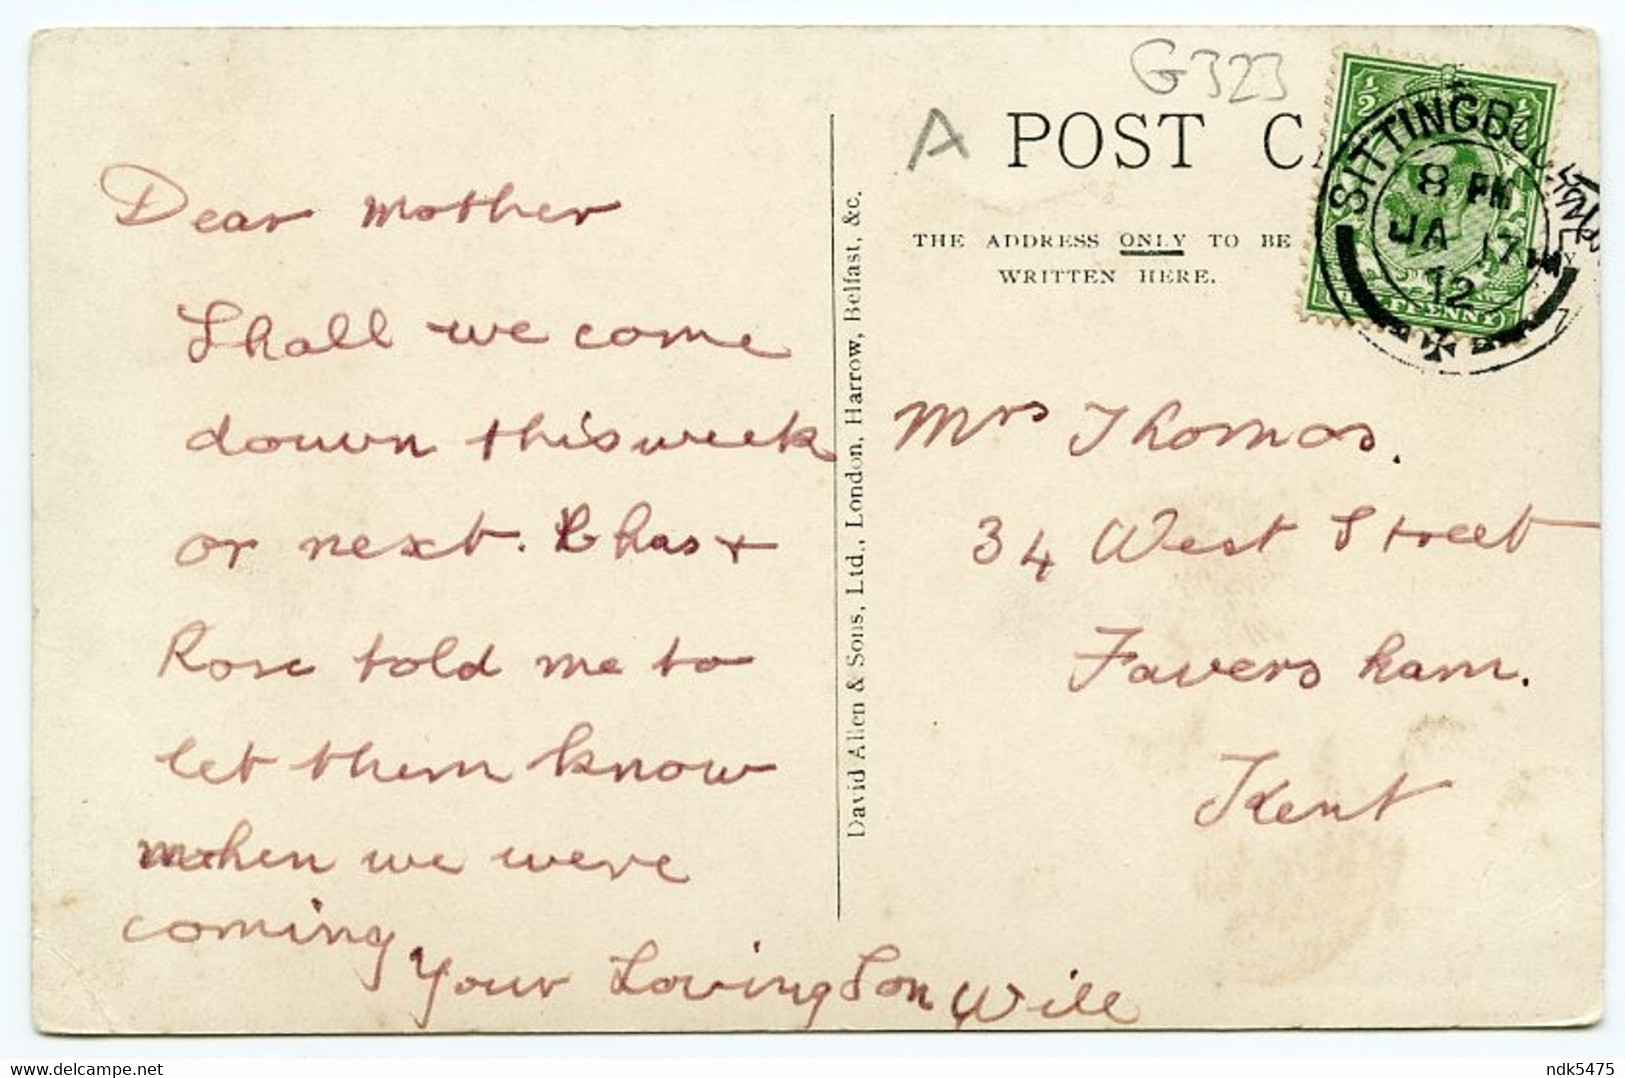 G323
A
POST
THE ADDRESS ONLY TO BE
WRITTEN HERE.
½
SITTINGBOURNE
8 PM
JA 17
12
PENNY
Dear Mother
Shall we come
down this week
or next. Chas +
Rose told me to
let them know
when we were
coming.
Your Loving Son Will
David Allen & Sons, Ltd., London, Harrow, Belfast, &c.
Mrs Thomas.
34 West Street
Faversham.
Kent
www.delcampe.net
ndk5475